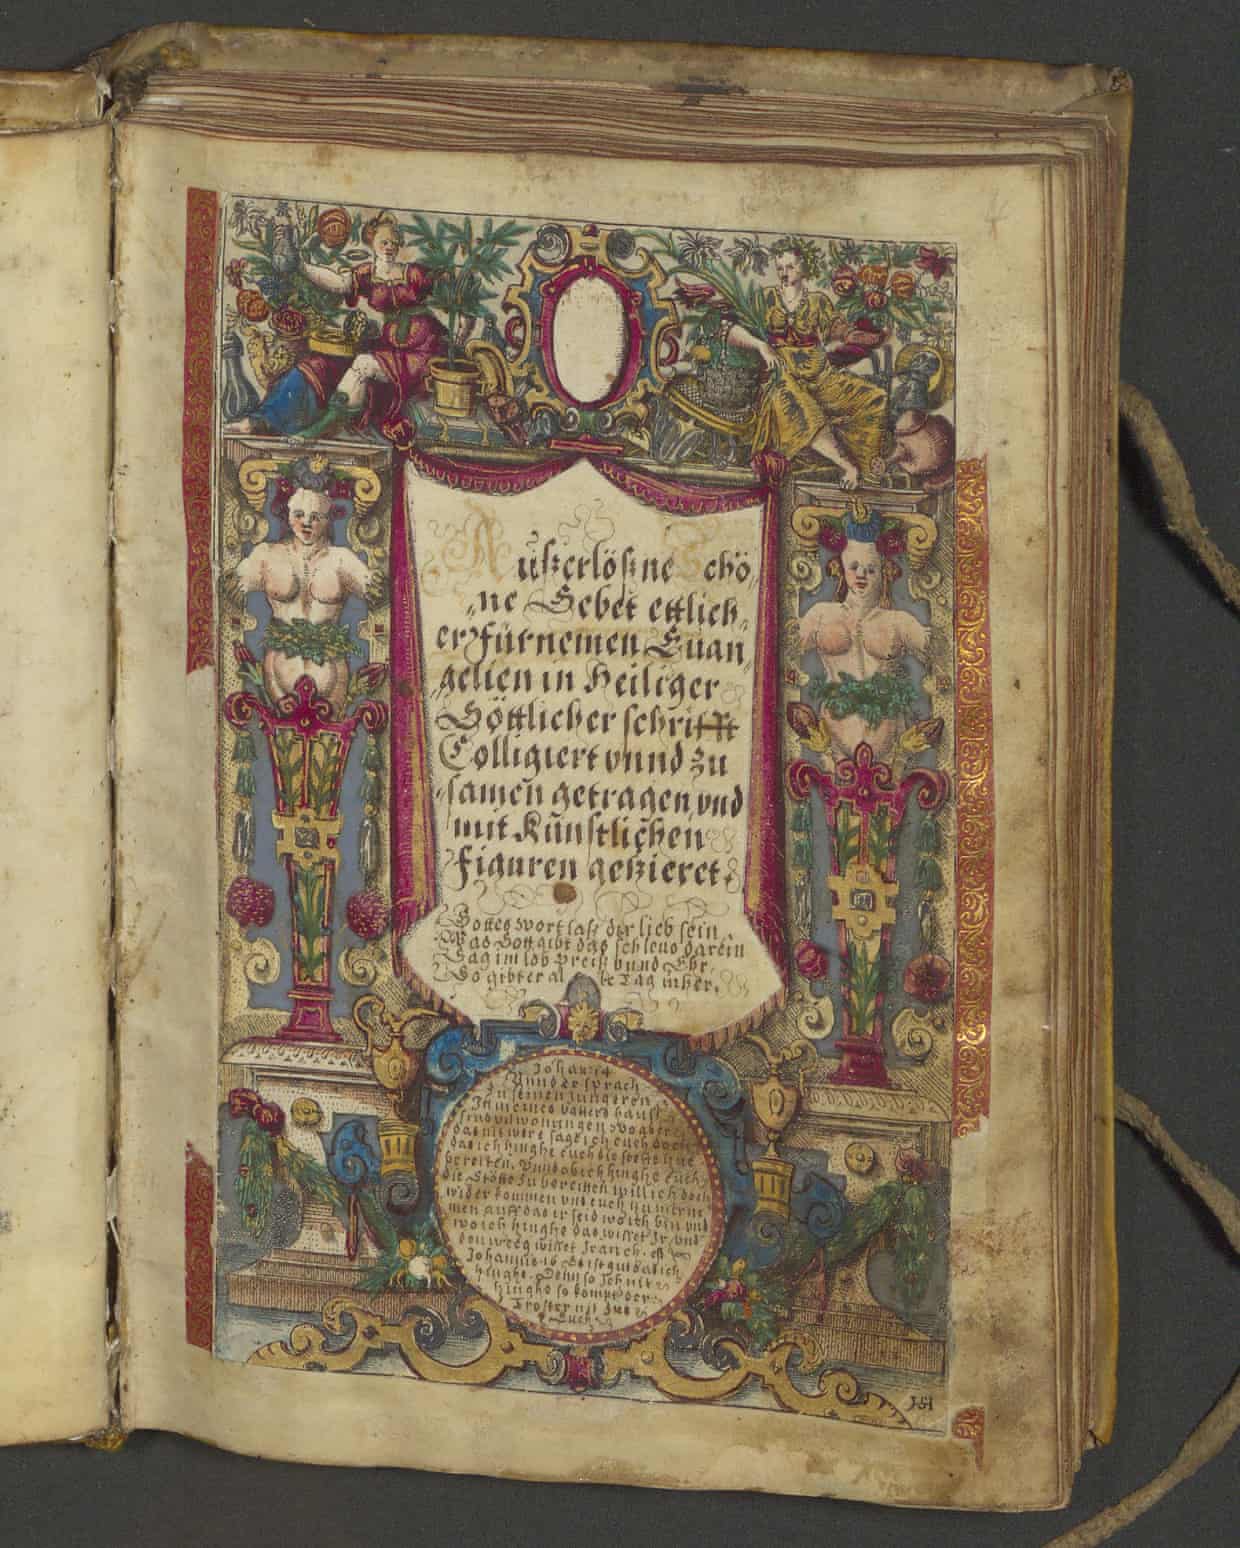 Außerlößne Schö
ne Gebet ettlich
er Fürnemen Euan
gelien in Heiliger
Göttlicher schrifft
Colligiert vnnd zu
samen getragen vnd
mit Kunstlichen
Figuren geßieret.
Gottes wort laß dir lieb sein,
Was Gott gibt das schleus darein
Sag im lob Preiß vnnd Ehr,
So gibt er al Tag mher.
Johan: 14
Vnnd er sprach
seinen Jungeren
In meines vatters hauß
sind vil wonungen, Wo aber
das nit wire sagt ich euch doch
das ich hinghe euch die stette zue
bereiten. Vund ob ich hinghe Euch
die Stötte zu bereitten will ich doch
wider kommen vnd euch zu mir ne
men auff das ir seid wo ich bin vnd
wo ich hinghe das wisset Jr, vnd
den weeg wisset Jr auch.
Johannis 16 Es ist gut das ich
hinghe. Denn so ich nit
hinghe so kompt der
Troster nit zue
Euch